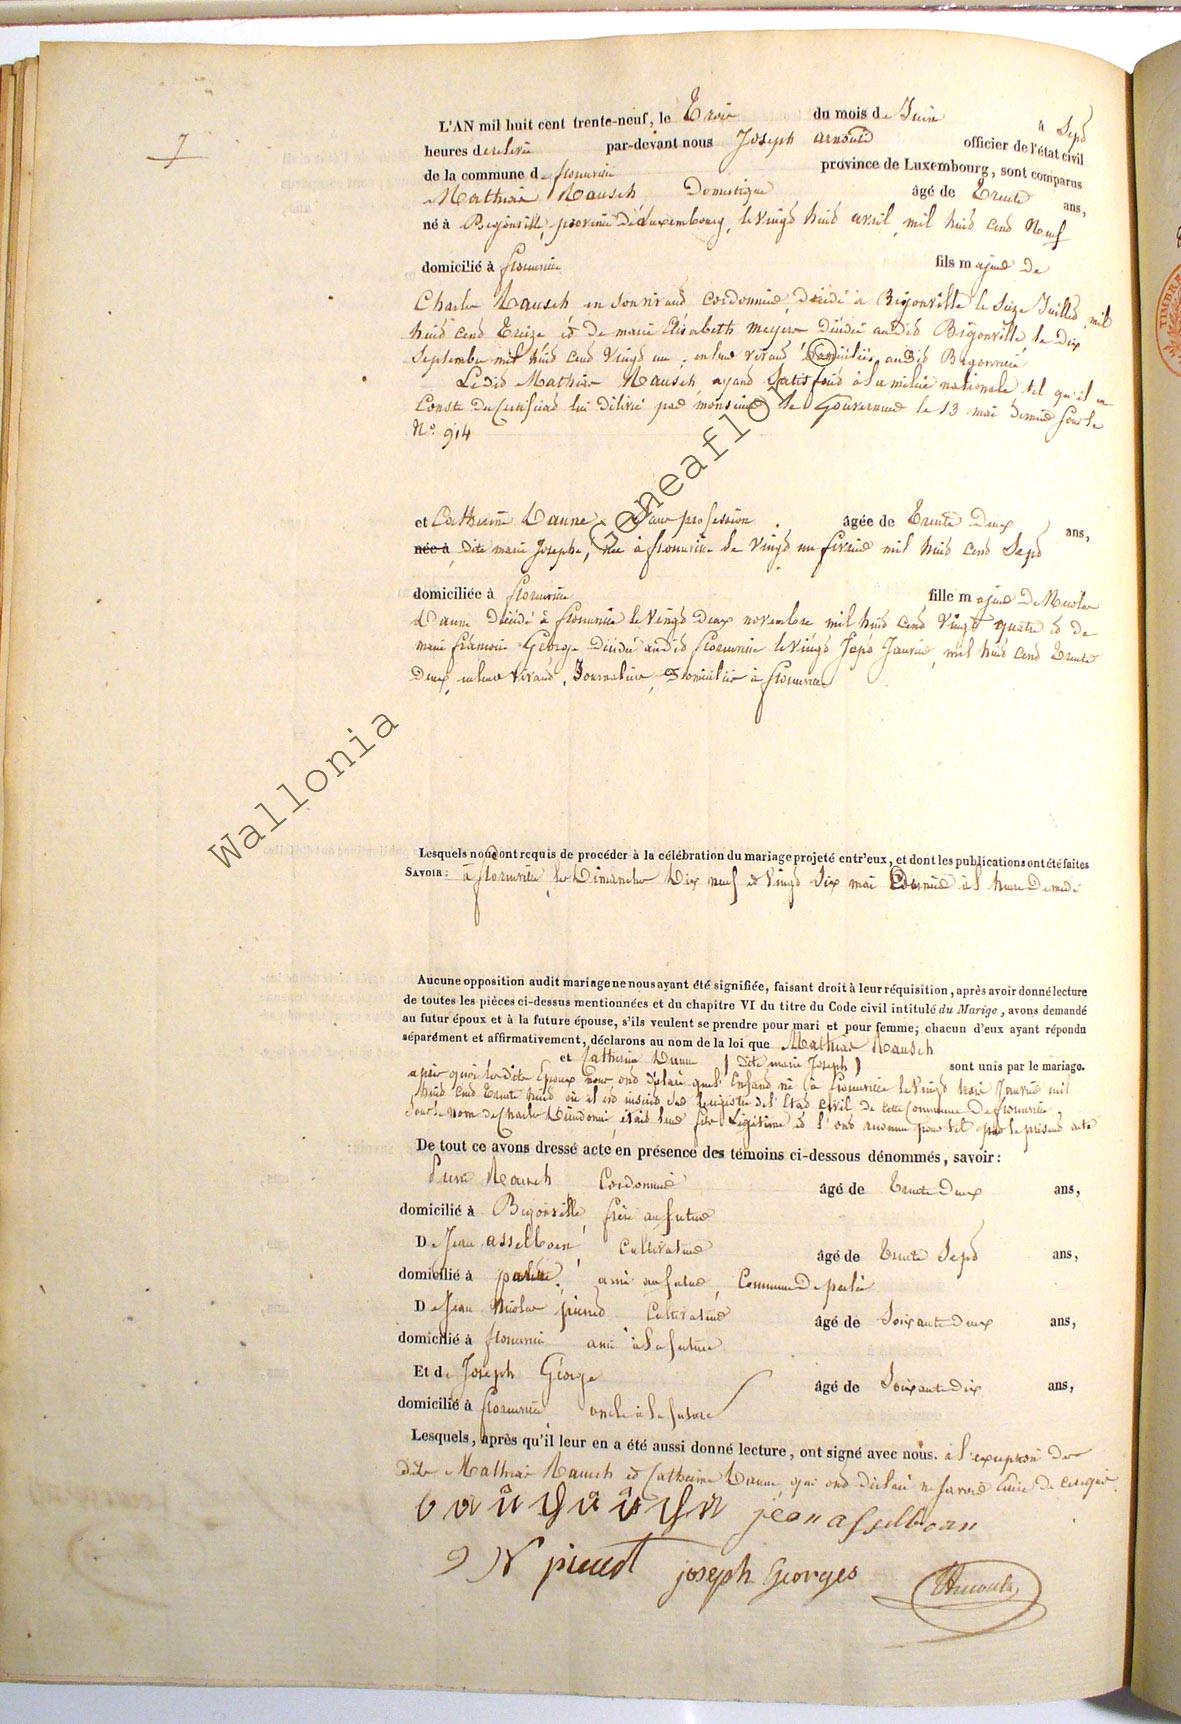 7
L'AN mil huit cent trente-neuf, le Trois du mois de Juin à Sept
heures de relevée par-devant nous Joseph Arnould officier de l'état civil
de la commune de florenville province de Luxembourg, sont comparus
Mathias Rausch Domestique âgé de Trente ans,
né à Bigonville, province de Luxembourg, le vingt huit avril mil huit cent Neuf
domicilié à florenville fils majeur de
Charles Rausch en son vivant Cordonnier, décédé à Bigonville le Seize Juillet mil
huit cent Treize et de marie Elisabeth Meyers décédée audit Bigonville le dix
Septembre mil huit cent vingt un, en leur vivant Domiciliés audit Bigonville
Ledit Mathias Rausch ayant Satisfait à la milice nationale tel qu'il
Conste du Certificat lui délivré par monsieur le Gouverneur le 13 mai dernier sous le
N.o 914
et Catherine Danne Sans profession âgée de Trente Deux ans,
née à dite marie Josephe, née à florenville le vingt un février mil huit cent Sept
domiciliée à florenville fille majeure De Nicolas
Danne décédé à florenville le vingt deux novembre mil huit cent vingt quatre et de
marie françoise George décédée audit florenville le vingt Sept Janvier mil huit cent Trente
Deux, en leur vivant, Journaliers, Domiciliés à florenville
Lesquels nous ont requis de procéder à la célébration du mariage projeté entr'eux, et dont les publications ont été faites
SAVOIR : à florenville les Dimanches Dix neuf et vingt Six mai Dernier à l'heure De midi
Aucune opposition audit mariage ne nous ayant été signifiée, faisant droit à leur réquisition, après avoir donné lecture
de toutes les pièces ci-dessus mentionnées et du chapitre VI du titre du Code civil intitulé du Marige, avons demandé
au futur époux et à la future épouse, s'ils veulent se prendre pour mari et pour femme; chacun d'eux ayant répondu
séparément et affirmativement, déclarons au nom de la loi que Mathias Rausch
et Catherine Danne (dite marie Joseph) sont unis par le mariago.
après quoi lesdits Epoux nous ont déclaré que l'Enfant né à florenville le vingt trois Janvier mil
huit cent Trente huit où il est inscrit au Registre de l'Etat civil de cette Commune De florenville,
sous le nom de Charles Dieudonné était leur fils Légitime et l'ont reconnu pour tel par le présent acte
De tout ce avons dressé acte en présence des témoins ci-dessous dénommés, savoir :
Pierre Rausch Cordonnier âgé de Trente Deux ans,
domicilié à Bigonville frère au futur
De Jean asselborn, Cultivateur âgé de Trente Sept ans,
domicilié à ami au futur, Commune De
De Jean Nicolas pierret Cultivateur âgé de Soixante Deux ans,
domicilié à florenville ami à la future
Et de Joseph George âgé de Soixante Dix ans,
domicilié à florenville oncle à la future
Lesquels, après qu'il leur en a été aussi donné lecture, ont signé avec nous. à l'exception des
dits Mathias Rausch et Catherine Danne qui ont déclaré ne savoir Ecrire de ce requis.
jean asselborn
J N pierret joseph Georges Arnould
Wallonia Geneaflor